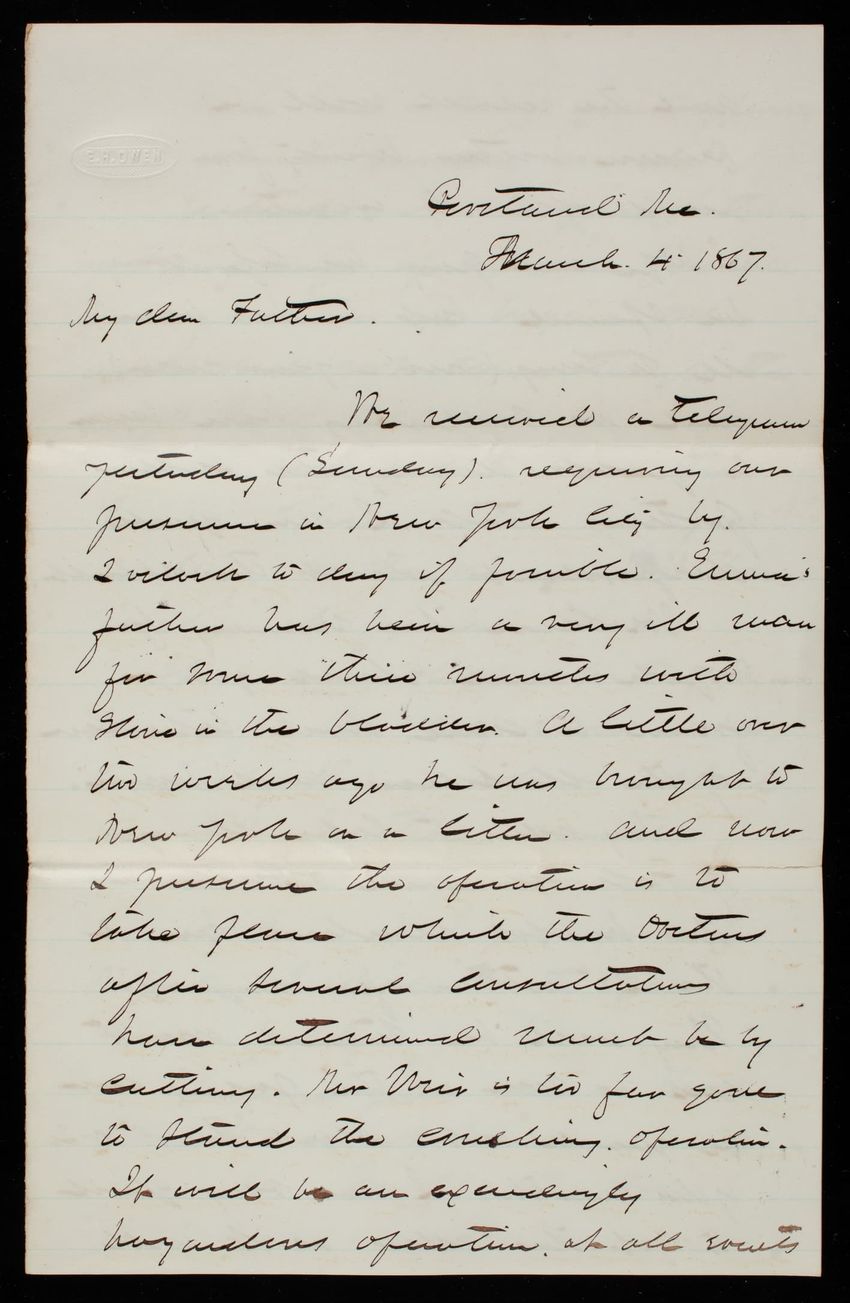 E.H. OWEN
Portland Me.
March. 4 1867.
My dear Father.
We received a telegram
yesterday (Sunday). requiring our
presence in New York City by.
2 oclock to day if possible. Emma's
father has been a very ill man
for some three months with
Stone in the bladder. A little over
two weeks ago he was brought to
New York on a litter. and now
I presume the operation is to
take place which the Doctors
after several consultations
have determined must be by
cutting. Mr Weir is too far gone
to stand the crushing. operation.
It will be an exceedingly
hazardous operation. at all events